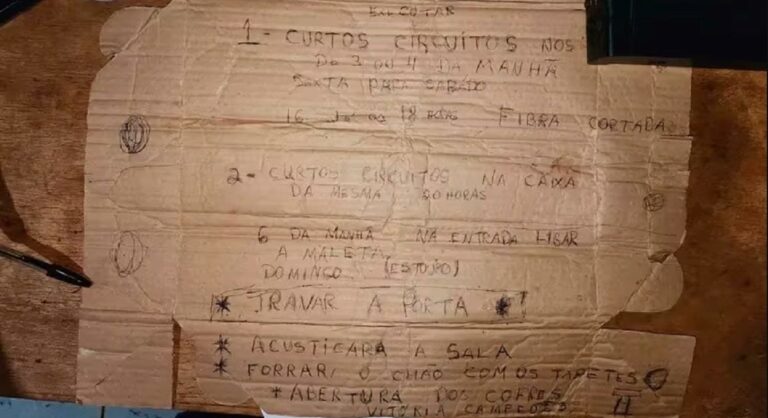 EXECUTAR
1 - CURTOS CIRCUITOS NOS
DO 3 OU 4 DA MANHÃ
SEXTA PARA SABADO
16 as 18 FIBRA CORTADA
2 - CURTOS CIRCUITOS NA CAIXA
DA MESMA 20 HORAS
6 DA MANHÃ NA ENTRADA LIGAR
A MALETA
DOMINGO (ESTOJO)
* TRAVAR A PORTA *
* ACUSTICARA A SALA
* FORRAR O CHÃO COM OS TAPETES
* ABERTURA DOS COFRES
VITORIA